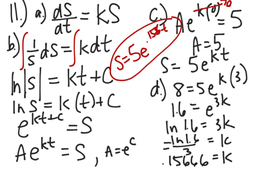 11.) a) dS/dt = kS
b) ∫ 1/S dS = ∫ k dt
ln|s| = kt + C
ln S = k(t) + C
e^(kt+c) = S
Ae^(kt) = S, A = e^c
c) Ae^(k(0)) = 5
A = 5
S = 5e^(kt)
d.) 8 = 5e^(k(3))
1.6 = e^(3k)
ln 1.6 = 3k
= ln 1.6 / 3 = k
.15666 = k